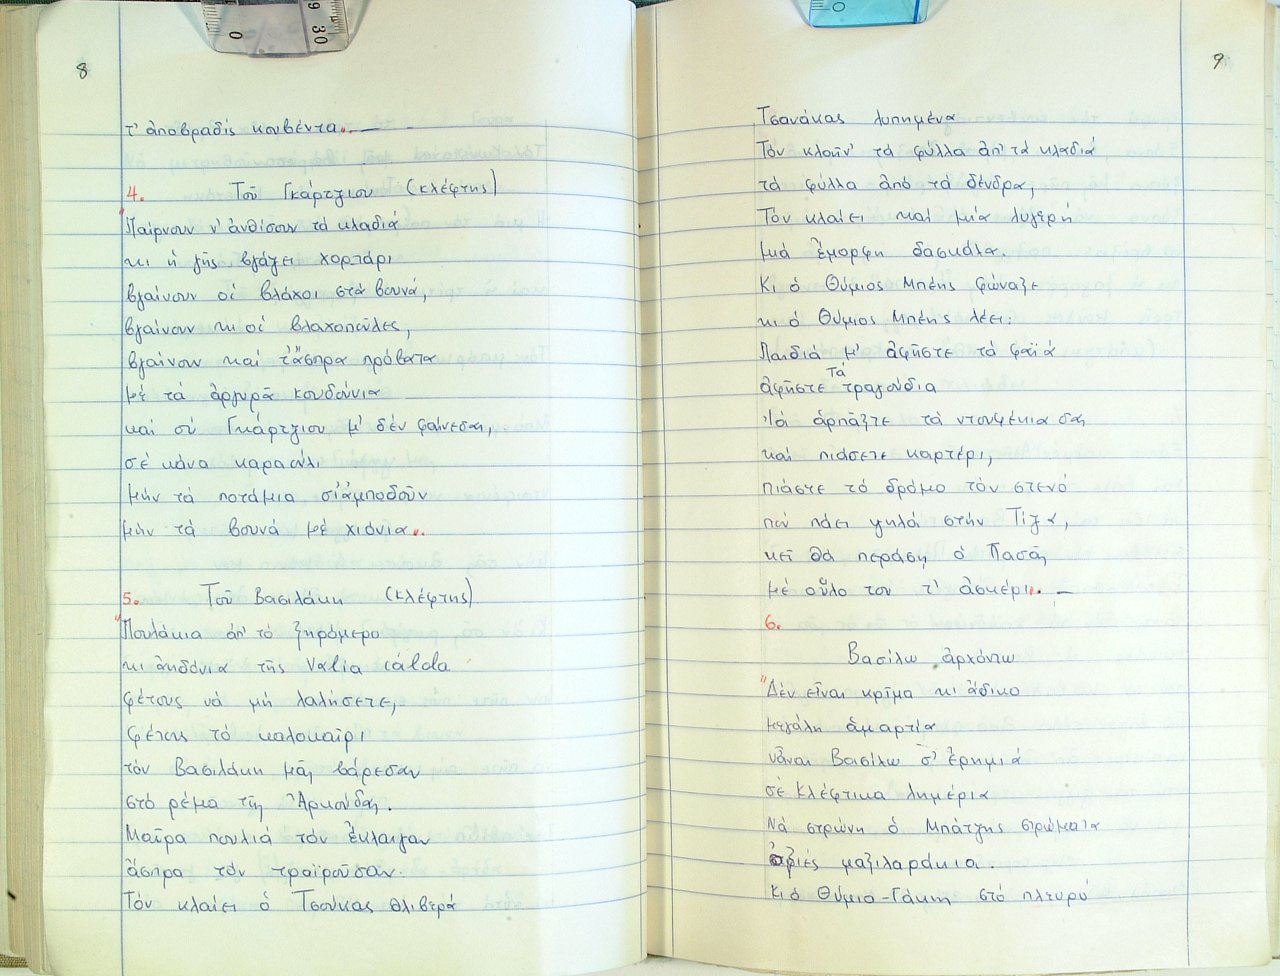 8
τ' ἀποβραδίς κουβέντα". —
4. Τοῦ Γκάρτζιου (κλέφτης)
"Παίρνουν ν' ἀνθίσουν τά κλαδιά
κι ἡ γῆς βγάζει χορτάρι
βγαίνουν οἱ βλάχοι στά βουνά,
βγαίνουν κι οἱ βλαχοποῦλες,
βγαίνουν καί τ' ἄσπρα πρόβατα
μέ τά ἀργυρᾶ κουδούνια
καί σύ Γκάρτζιου μ' δέν φαίνεσαι,
σέ κάνα καραούλι
μήν τά ποτάμια σ' ἀμποδοῦν
μήν τά βουνά μέ χιόνια".
5. Τοῦ Βασιλάκη (κλέφτης)
"Πουλάκια ἀπ' τό ξηρόμερο
κι ἀηδόνια τῆς Valia cálda
φέτους νά μή λαλήσετε,
φέτους τό καλοκαῖρι
τόν Βασιλάκη μᾶς βάρεσαν
στό ρέμα τῆς Ἀρκούδας.
Μαῦρα πουλιά τόν ἔκλαιγαν
ἄσπρα τόν τραϊροῦσαν.
Τόν κλαίει ὁ Τσούκας θλιβερά
9
Τσανάκας λυπημένα
Τόν κλαῖν' τά φύλλα ἀπ' τά κλαδιά
τά φύλλα ἀπό τά δένδρα,
Τόν κλαίει καί μία λυγερή
μιά ἔμορφη δασκάλα.
Κι ὁ Θύμιος Μπέης φώναξε
κι ὁ Θύμιος Μπέης λέει:
Παιδιά μ' ἀφῆστε τά φαϊά
ἀφῆστε τά τραγούδια
Γιά ἁρπᾶξτε τά ντουφέκια σας
καί πιάσετε καρτέρι,
πιάστε τό δρόμο τόν στενό
πού πάει ψηλά στήν Τίζα,
κεῖ θά περάση ὁ Πασᾶς
μέ οὗλο του τ' ἀσκέρι". —
6.
Βασίλω ἀρχόντω
"Δέν εἶναι κρῖμα κι ἄδικο
μεγάλη ἁμαρτία
νἆναι Βασίλω σ' ἐρημιά
σέ κλέφτικα λημέρια
Νά στρώνη ὁ Μπάτζης στρώματα
ὀξιές μαξιλαράκια.
Κι ὁ Θύμιο-Γάκης στό πλευρό